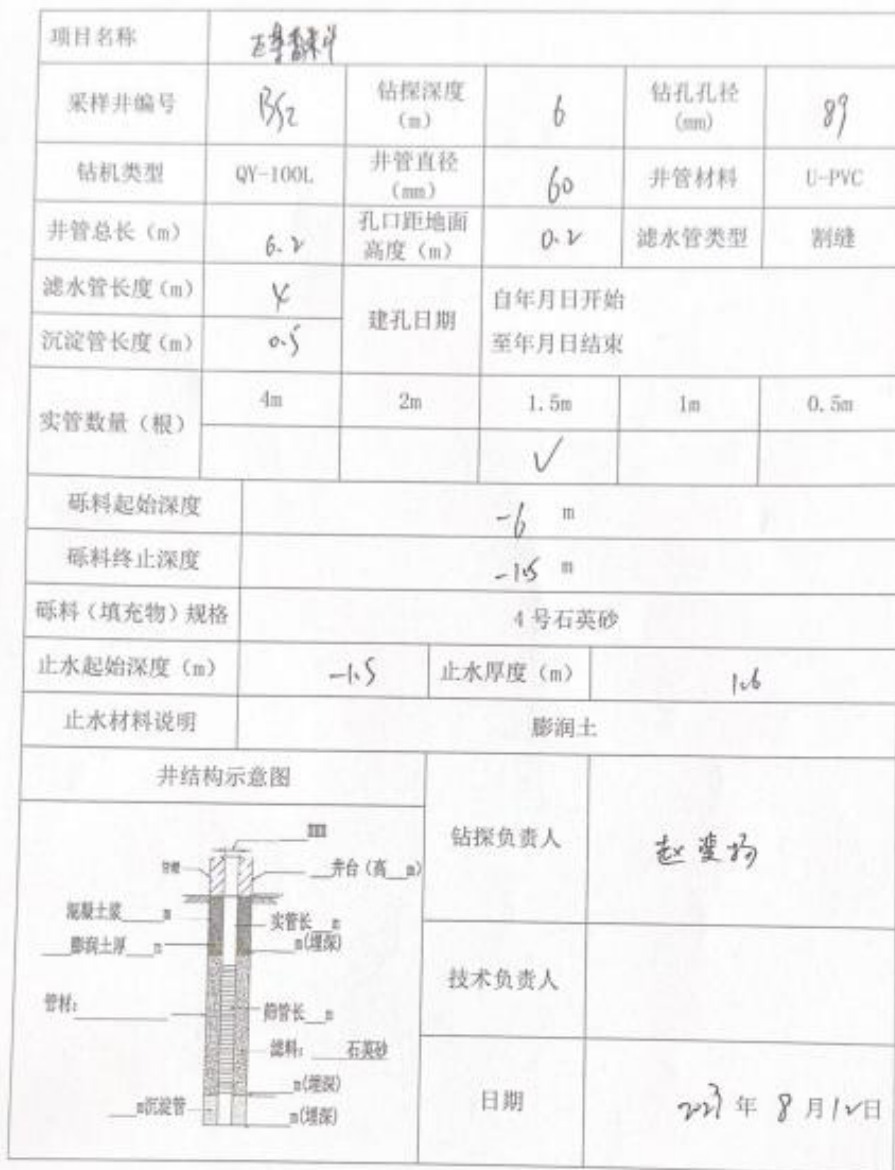 项目名称
采样井编号 BS2 钻探深度（m） 6 钻孔孔径（mm） 89
钻机类型 QY-100L 井管直径（mm） 60 井管材料 U-PVC
井管总长（m） 6.2 孔口距地面高度（m） 0.2 滤水管类型 割缝
滤水管长度（m） 4 建孔日期 自年月日开始
沉淀管长度（m） 0.5 至年月日结束
实管数量（根） 4m 2m 1.5m 1m 0.5m
✓
砾料起始深度 -6 m
砾料终止深度 -1.5 m
砾料（填充物）规格 4号石英砂
止水起始深度（m） -1.5 止水厚度（m） 1.6
止水材料说明 膨润土
井结构示意图
井台（高__m）
混凝土浆____m
实管长__m
____膨润土厚__m
__m(埋深)
管材：________
筛管长__m
滤料：____石英砂
__m(埋深)
__m沉淀管
__m(埋深)
钻探负责人 赵
技术负责人
日期 2023年8月12日